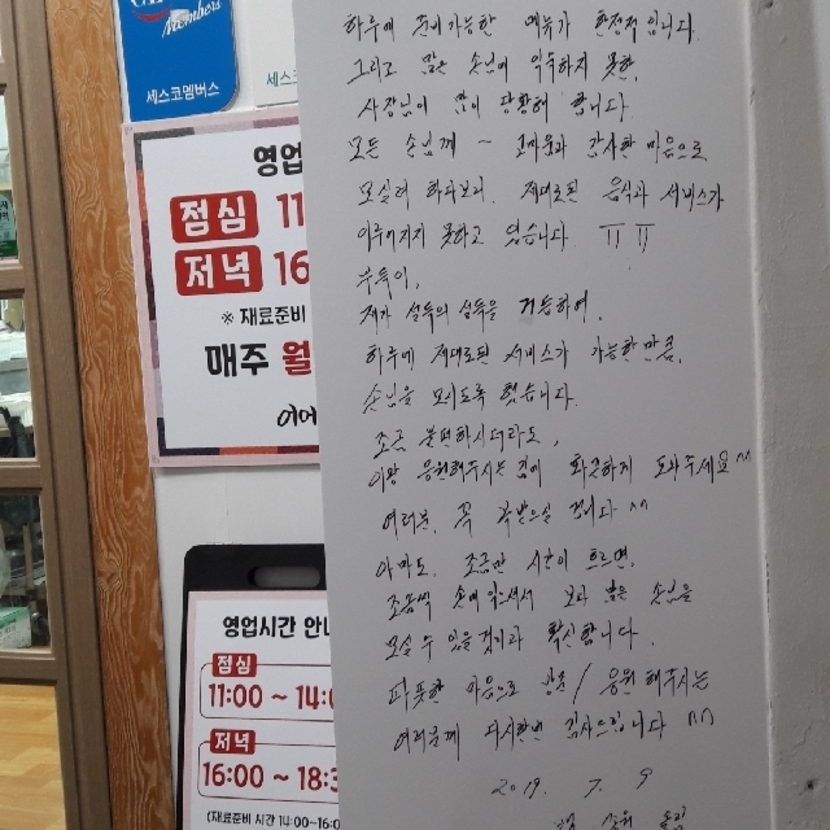 Members
세스코멤버스
세스코
영업
점심 11
저녁 16
※ 재료준비
매주 월
영업시간 안내
점심
11:00 ~ 14:0
저녁
16:00 ~ 18:3
(재료준비 시간 14:00~16:0
하루에 준비가능한 메뉴가 한정적 입니다.
그리고 많은 손님에 익숙하지 못한,
사장님이 많이 당황해 합니다.
모든 손님께 ~ 고마움과 감사한 마음으로
모실려 하다보니, 제대로된 음식과 서비스가
이루어지지 못하고 있습니다. ㅠㅠ
부득이,
제가 설득의 설득을 거듭하여,
하루에 제대로된 서비스가 가능한 만큼,
손님을 모시도록 했습니다.
조금 불편하시더라도,
이왕 응원해주시는 김에 화끈하게 도와주세요^^
여러분, 꼭 복받으실 겁니다^^
아마도, 조금만 시간이 흐르면,
조금씩 손에익으셔서 보다 많은 손님을
모실 수 있을것이라 확신합니다.
따뜻한 마음으로 방문/응원해주시는
여러분께 다시한번 감사드립니다 ^^
2019. 7. 9